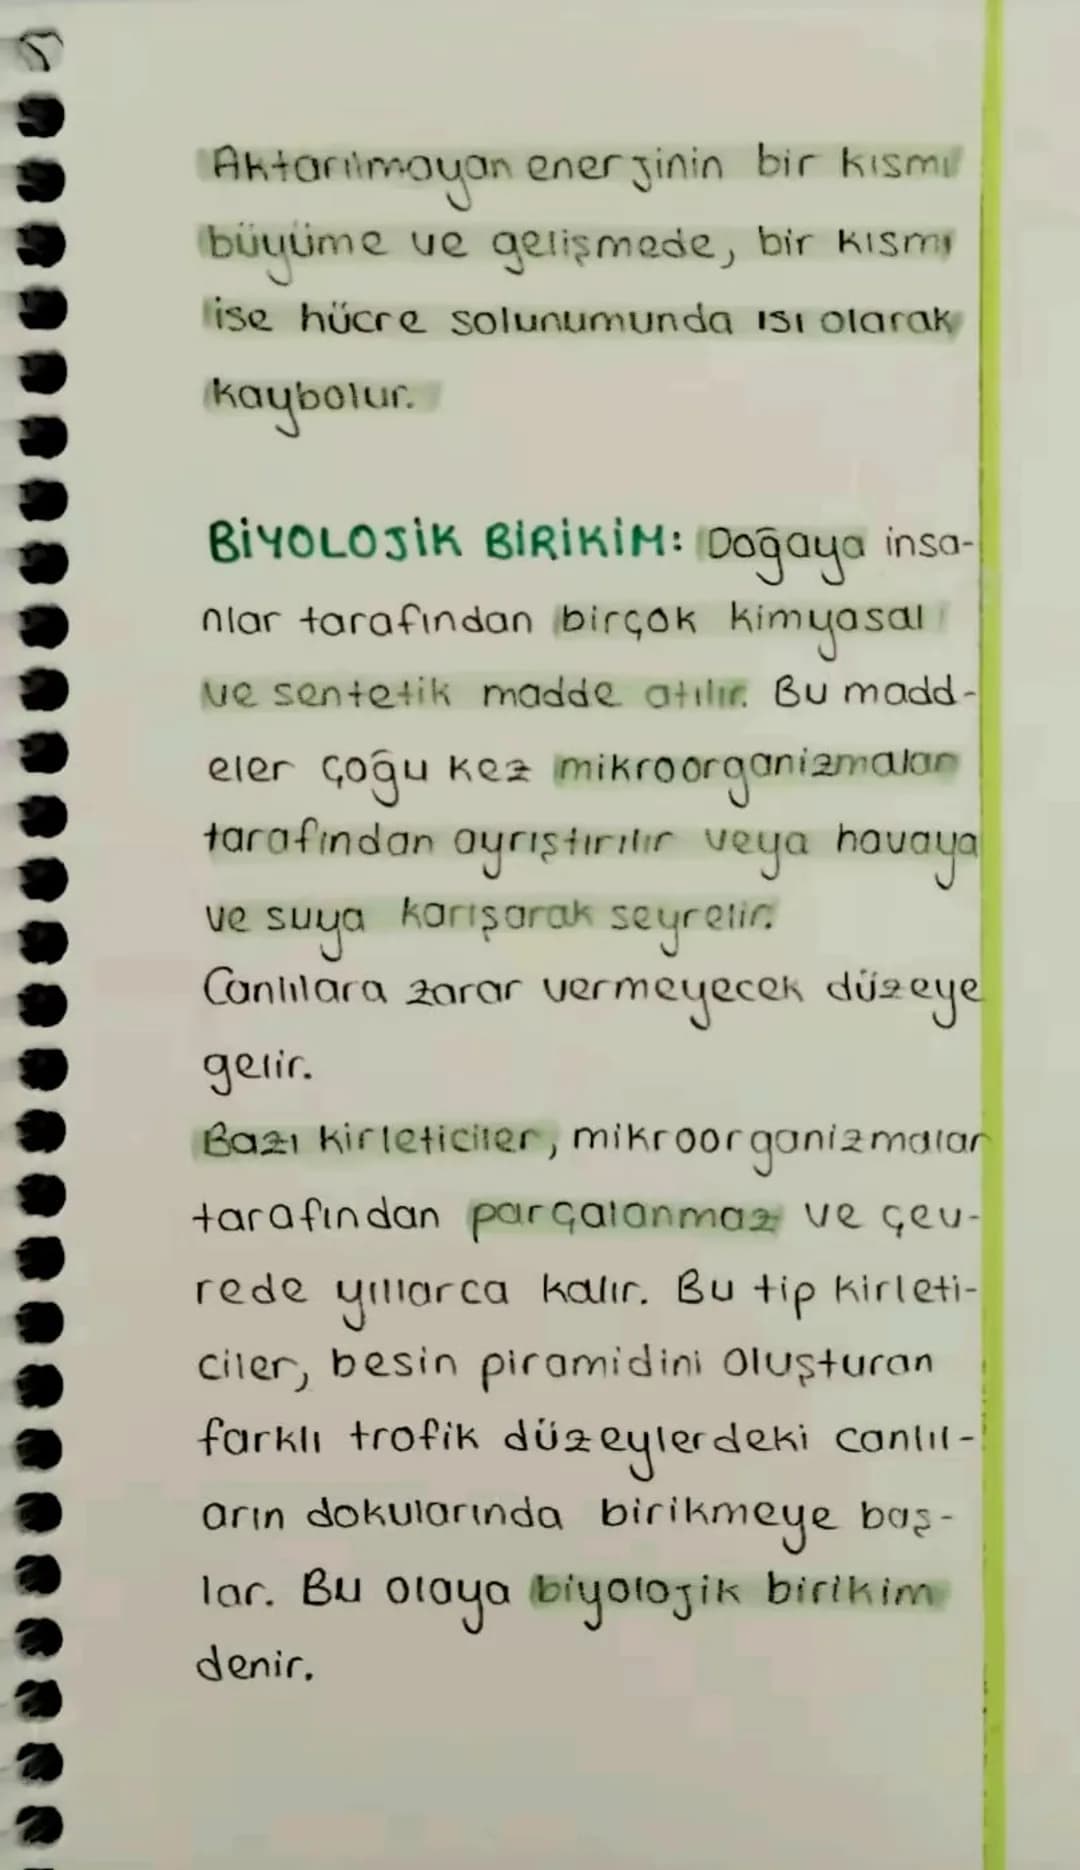 Aktarılmayan enerjinin bir kısmı
büyüme ve gelişmede, bir kısmı
ise hücre solunumunda ısı olarak
kaybolur.
BİYOLOJİK BİRİKİM: Doğaya insa-
nlar tarafından birçok kimyasal
ve sentetik madde atılır. Bu madd-
eler çoğu kez mikroorganizmaları
tarafından ayrıştırılır veya havaya
ve suya karışarak seyrelir.
Canlılara zarar vermeyecek düzeye
gelir.
Bazı kirleticiler, mikroorganizmalar
tarafından parçalanmaz ve çev-
rede yıllarca kalır. Bu tip kirleti-
ciler, besin piramidini oluşturan
farklı trofik düzeylerdeki canlıl-
arın dokularında birikmeye baş-
lar. Bu olaya biyolojik birikim
denir.